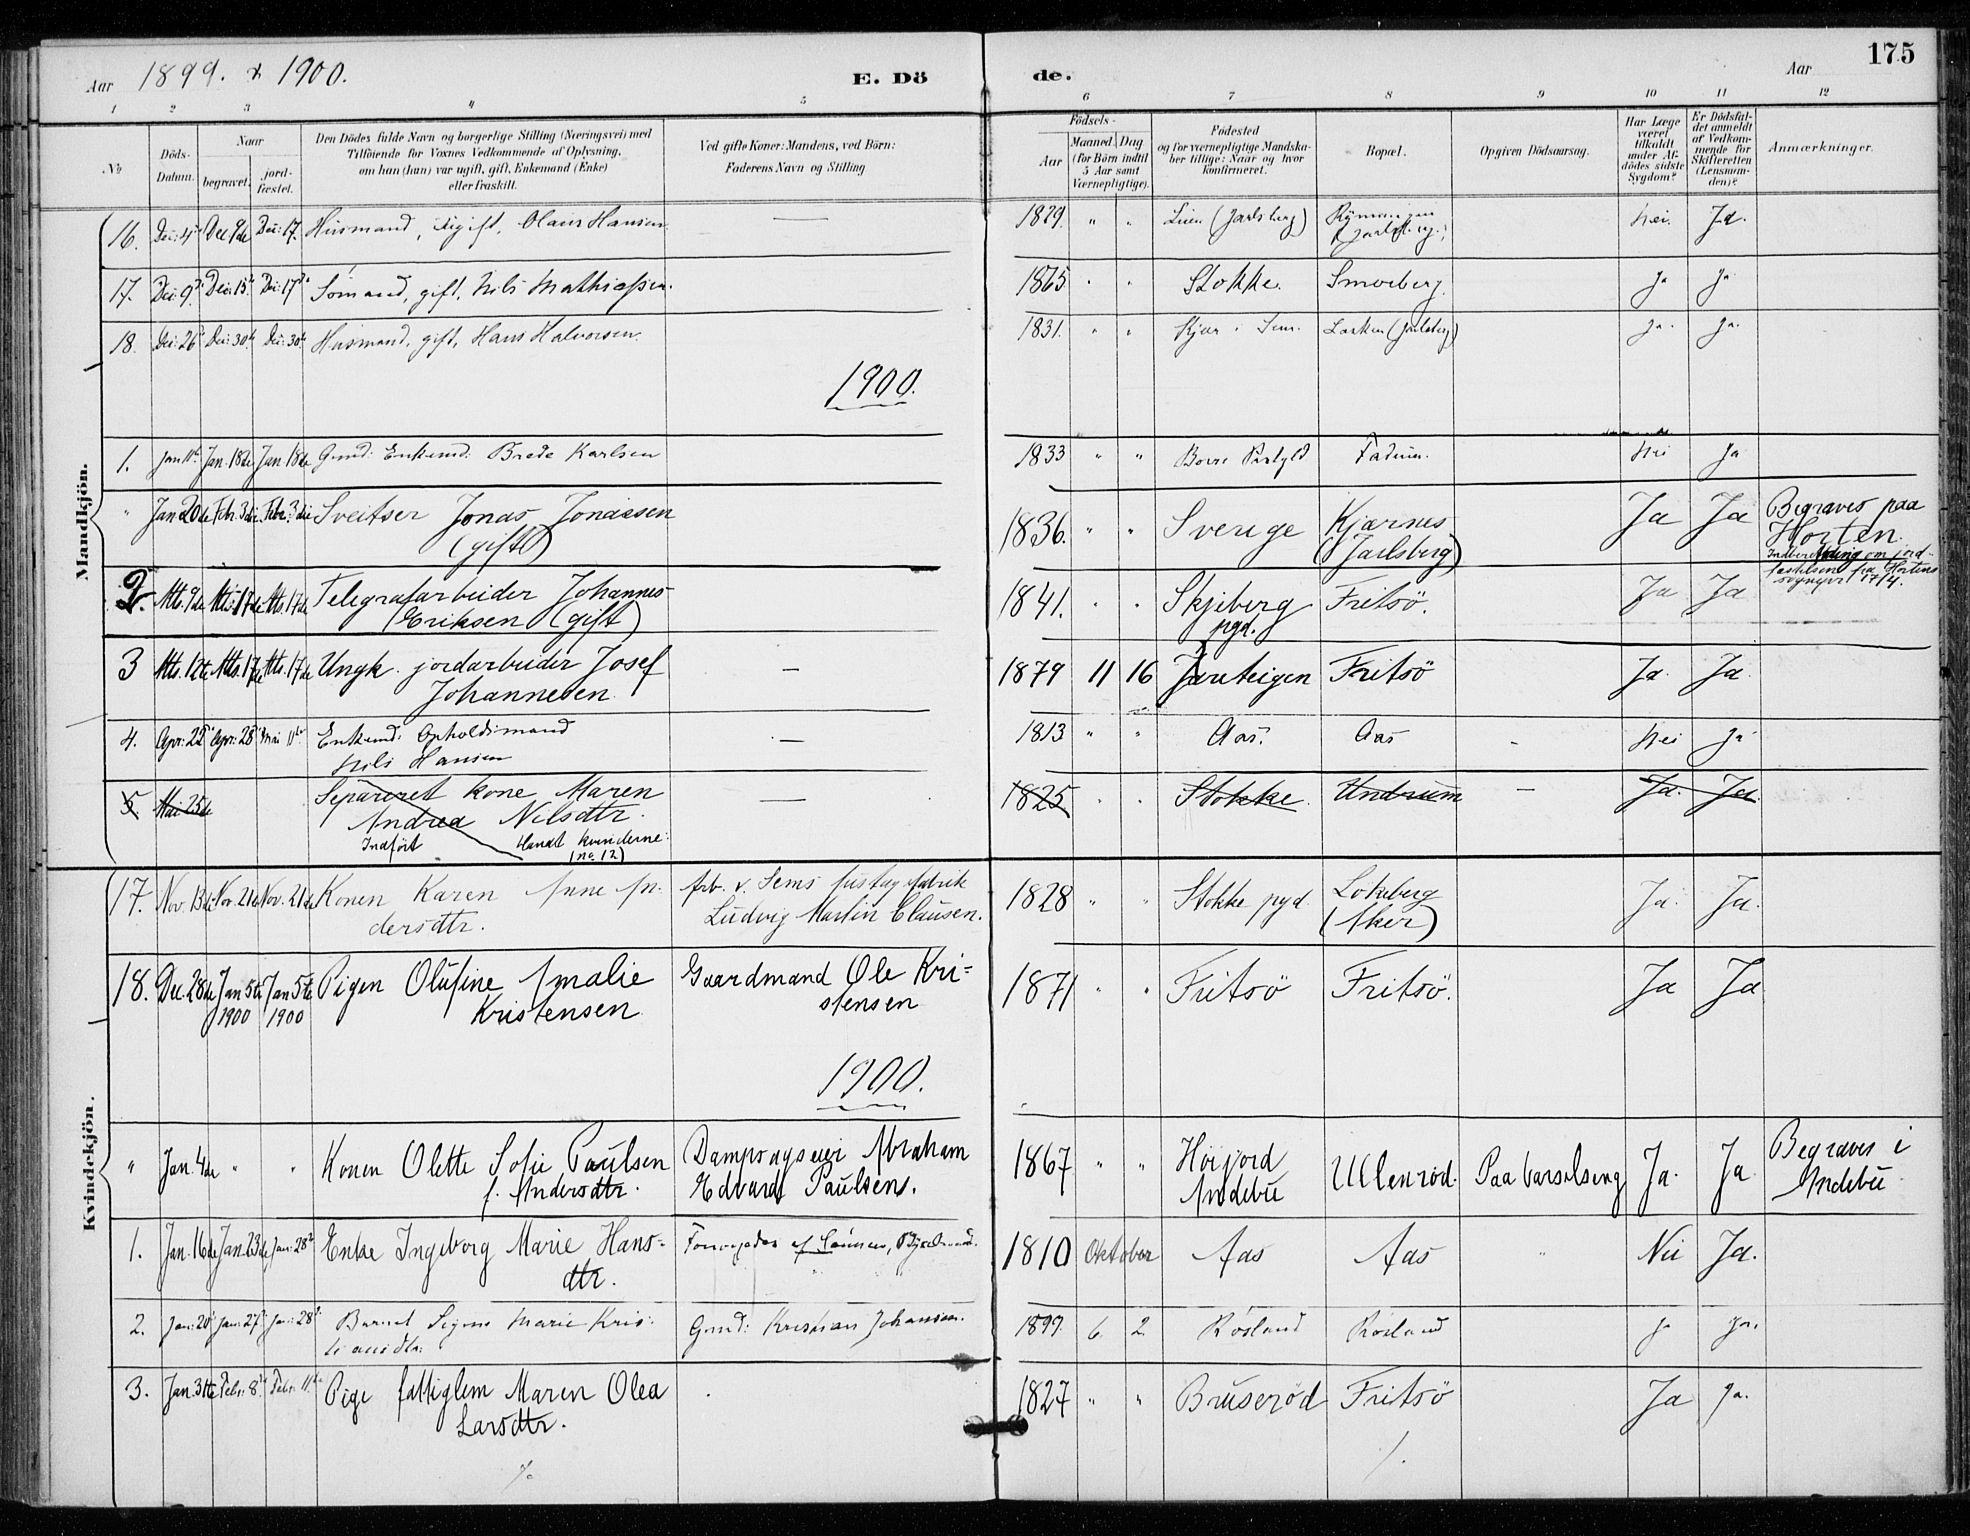 Aar 1899. & 1900. E. Dö de. Aar 175
1 2 3 4 5 6 7 8 9 10 11 12
No Döds-Datum. Naar begravet. jord-fæstet.
Den Dödes fulde Navn og borgerlige Stilling (Næringsvei) med
Tilföiende for Voxnes Vedkommende af Oplysning,
om han (hun) var ugift, gift, Enkemand (Enke)
eller fraskilt.
Ved gifte Koner: Mandens, ved Börn:
Faderens Navn og Stilling
Födsels-
Aar Maaned. Dag
(for Börn indtil
5 Aar samt
Værnepligtige).
Födested
og for værnepligtige Mandska-
ber tillige: Naar og hvor
konfirmeret.
Bopæl.
Opgiven Dödsaarsag.
Har Læge
været
tilkaldt
under Af-
dödes sidste
Sygdom?
Er Dödsfal-
det anmeldt
af Vedkom-
mende for
Skifteretten
(Lensman-
den)?
Anmærkninger.
Mandkjön.
16. Dec: 4de Dec 9de Dec: 17. Husmand, ugift, Olaus Hansen — 1829. " " (Jarlsberg) (Jarlsberg) Nei. Ja.
17. Dec: 9de Dec: 15de Dec: 17de Sömand, gift, Nils Mathiassen. 1865 " " Stokke. Smörberg. Ja Ja
18. Dec: 26de Dec: 30de Dec: 30de Husmand, gift, Hans Halvorsen. 1831. " " Kjær i Sem. (Jarlsberg) Ja. Ja.
1900.
1. Jan 11te Jan. 18de Jan. 18de Gmd: Enkemd: Brede Karlsen 1833 " " Borre Fadum. Nei Ja
" Jan 20de Febr. 3die Febr. 3die Sveitser Jonas Jonassen 1836. " " Sverige Kjærnes Ja Ja Begraves paa
(gift) (Jarlsberg) Horten.
Indberetning om jord-
fæstelsen fra Hortens
sognepr 17/4.
2. Mts. 9de Mts. 17de Mts. 17de Telegrafarbeider Johannes 1841. " " Skjeberg Fritsö. Ja Ja
Eriksen (gift) pgd.
3 Mts. 12te Mts. 17de Mts. 17de Ungk. jordarbeider Josef — 1879 11 16 Jareteigen Fritsö Ja. Ja
Johannesen
4. Apr: 22de Apr: 28de Mai 11te Enkemd: Opholdsmand — 1813 " " Aas. Aas - Nei Ja
Nils Hansen
5. Mai 25de Separeret kone Maren — 1825 " " Stokke. Undrum — Ja. Ja.
Andrea Nilsdtr.
Indført blandt kvinderne
(no. 12)
Kvindekjön.
17. Nov. 13de Nov. 21de Nov. 21de Konen Karen Anne An- arb. v. Sems fustagefabrik 1828 " " Stokke pgd. Lokeberg Ja. Ja.
dersdtr. Ludvig Martin Clausen. (Aker)
18. Dec. 28de Jan 5te Jan 5te Pigen Olufine Amalie Gaardmand Ole Kri- 1871 " " Fritsö Fritsö. Ja Ja
1900 1900 Kristensen stensen
1900.
" Jan. 4de " " Konen Olette Sofie Paulsen Dampsageier Abraham 1867 " " Höijord Ullenröd. Paa barselseng Ja. Ja Begraves i
f. Andersdtr. Edvard Paulsen. Andebu Andebu
1. Jan. 16de Jan. 23de Jan: 28de Enke Ingeborg Marie Hans- 1810 Oktober Aas Aas " Nei Ja.
dtr.
2. Jan: 20de Jan: 27de Jan: 28de Barnet Signe Marie Kris- Gmd: Kristian Johansen. 1899. 6. 2. Rösland Rösland Ja Ja.
tiansdtr.
3. Jan. 31te Febr. 8de Febr. 11te Pige fattiglem Maren Olea . 1827 " " Bruseröd Fritsö Ja Ja.
Larsdtr.